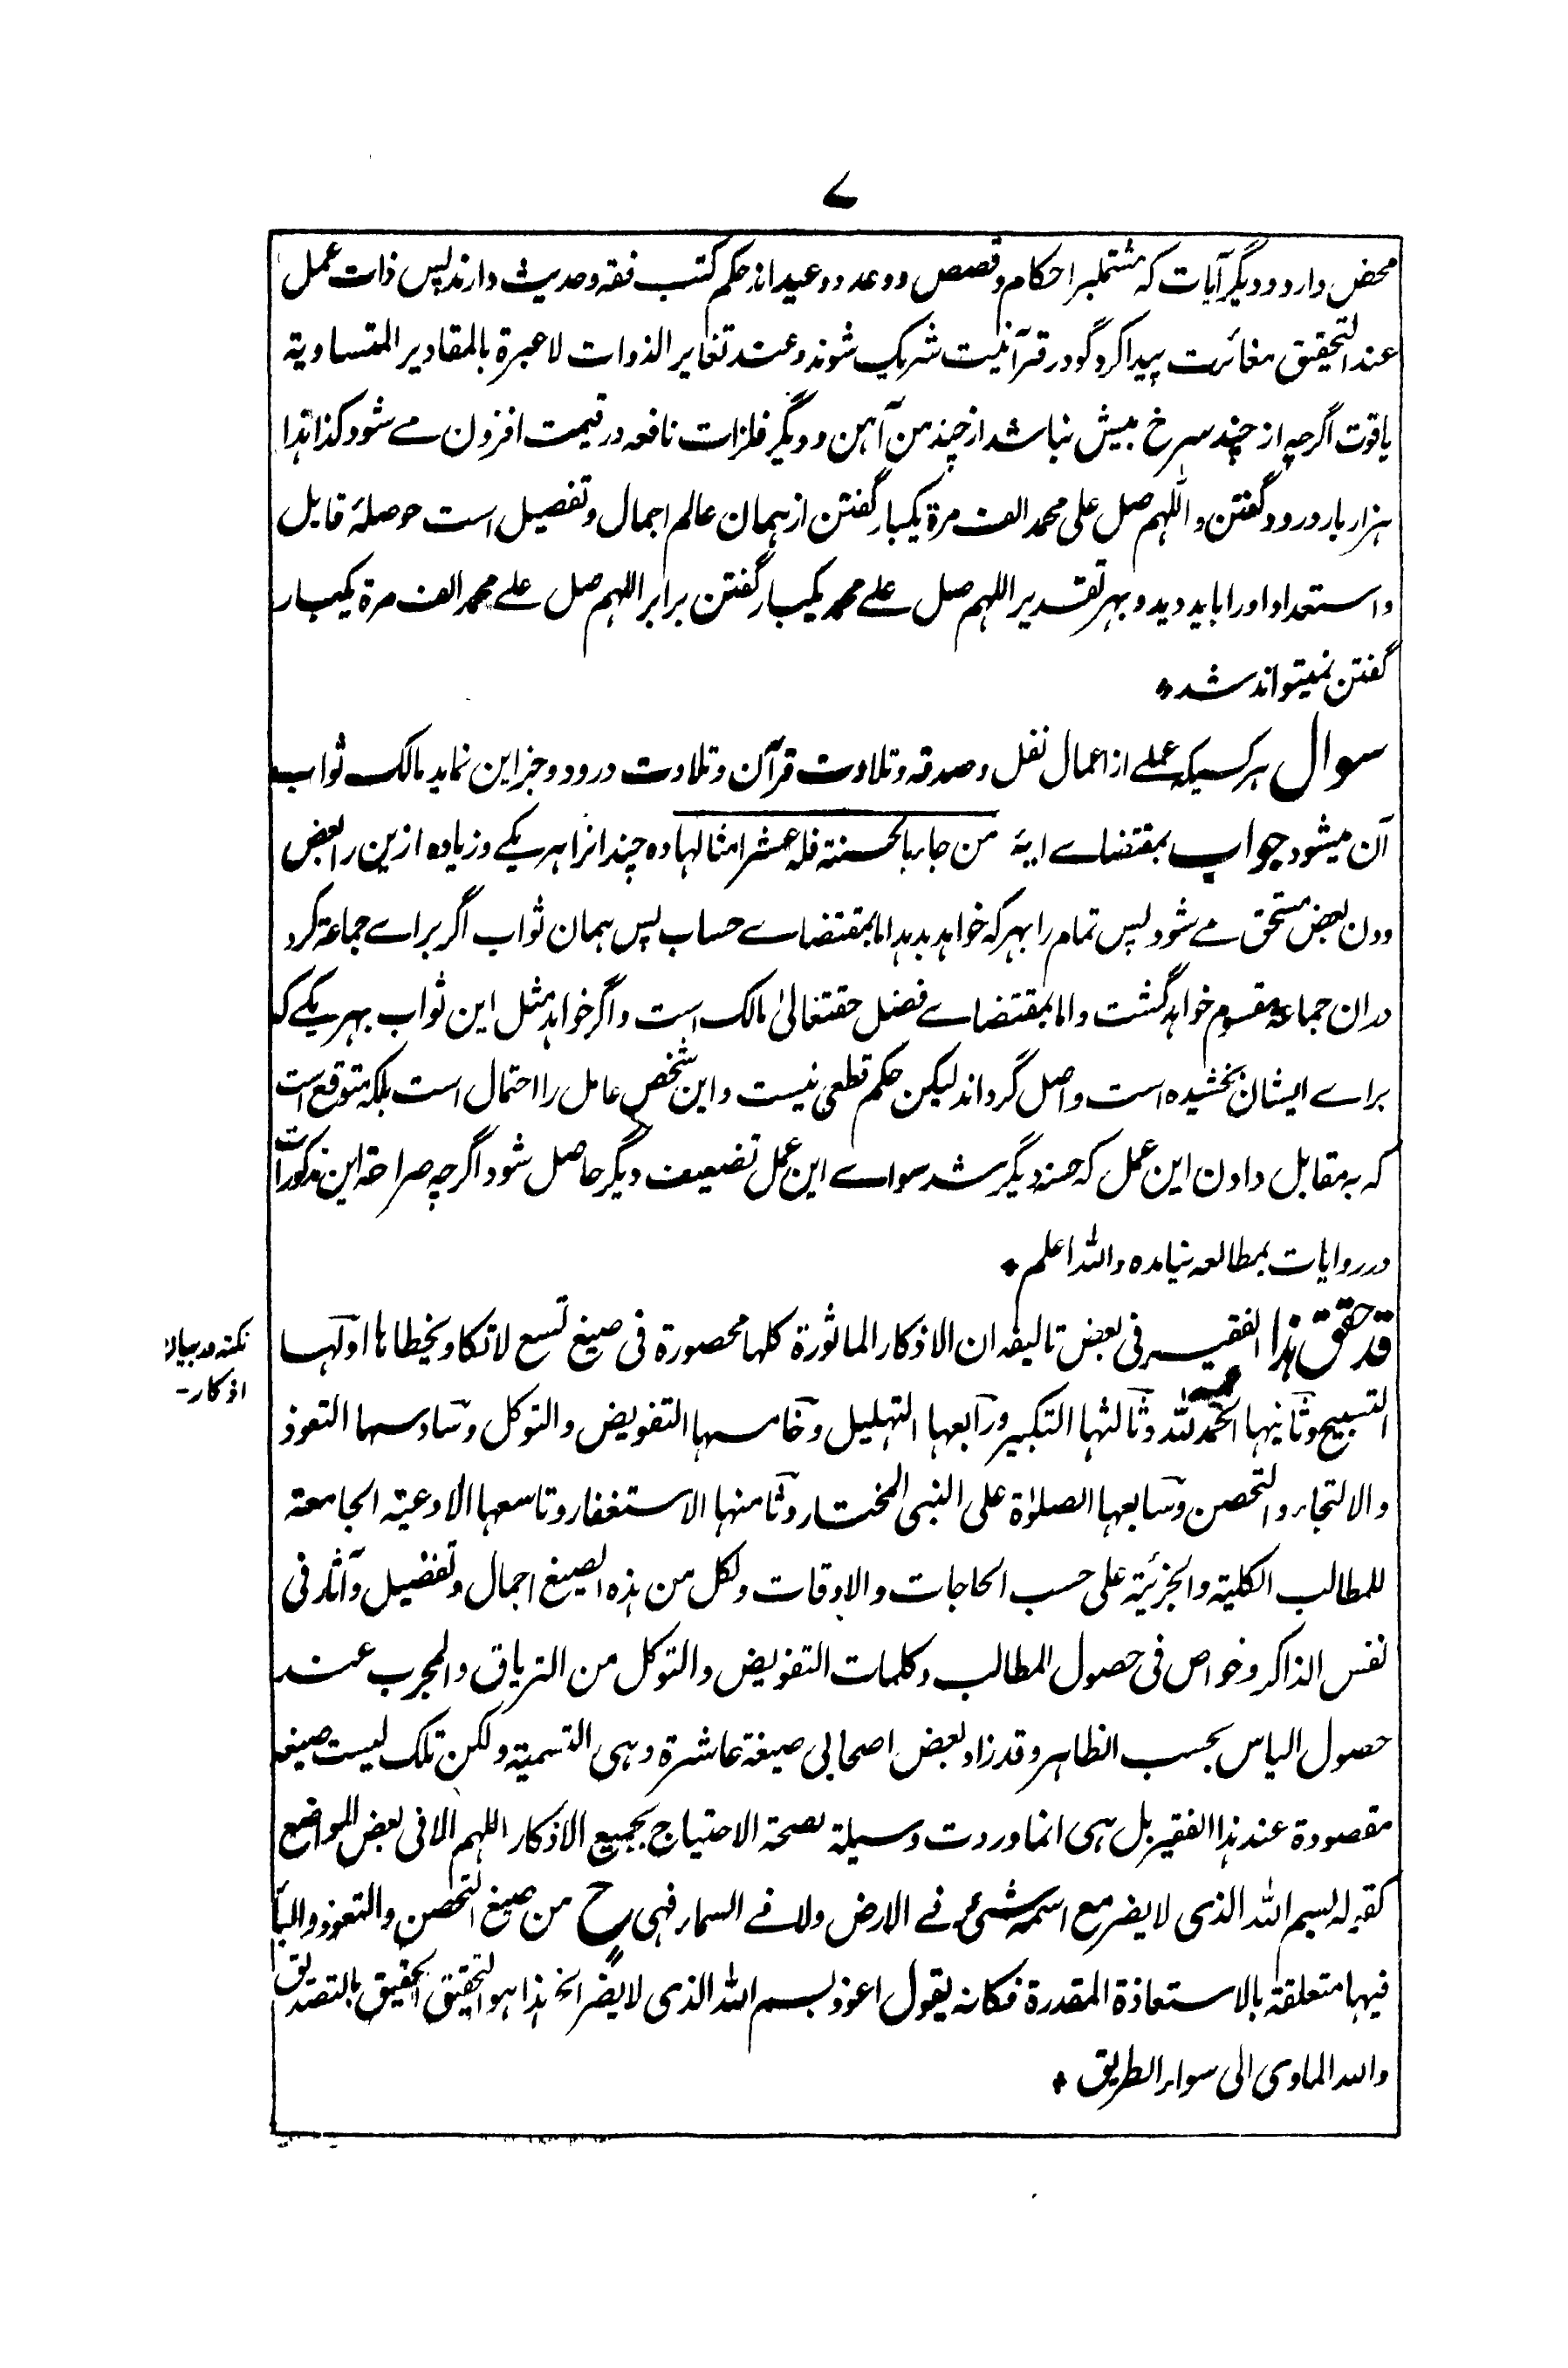 ۷
محض دارد و دیگر آیات که مشتملبر احکام و قصص و وعد و وعید اند حکم کتب فقه و حدیث دارند پس ذات عمل
عند التحقیق مغائرت پیدا کرد گو در قرآنیت شریک شوند و عند تغایر الذوات لا عبرة بالمقادیر المتساویة
یاقوت اگرچه از چند سرخ بیش نباشد از چند من آهن و دیگر فلزات نافعه در قیمت افزون مے شود کذا هذا
هزار بار درود گفتن و اللهم صل علی محمد الف مرة یکبار گفتن از همان عالم اجمال و تفصیل است حوصلهٔ قابل
و استعداد او را باید دید و بهر تقدیر اللهم صل علے محمد یکبار گفتن برابر اللهم صل علے محمد الف مرة یکبار
گفتن نمیتواند شد ٭
سوال هر کسیکه عملے از اعمال نفل و صدقه و تلاوت قرآن و تلاوت درود و جز این نماید مالک ثواب
آن میشود جواب بمقتضاے ایة من جاء بالحسنة فله عشر امثالها ده چند انرا هر یکے و زیاده ازین را بعض
دون بعض مستحق مے شود پس تمام را بهر که خواهد بدهد اما بمقتضاے حساب پس همان ثواب اگر براے جماعة کرد
دران جماعة مقسوم خواهد گشت و اما بمقتضاے فضل حقتعالیٰ مالک است و اگر خواهد مثل این ثواب بهر یکے که
براے ایشان بخشیده است واصل گرداند لیکن حکم قطعی نیست و این شخص عامل را احتمال است بلکه متوقع است
که به مقابل دادن این عمل که حسنه دیگر شد سواے این عمل تضعیف دیگر حاصل شود اگرچه صراحة این مذکورات
در روایات بمطالعه نیامده والله اعلم ٭
قد حقق هذا الفقیر فی بعض تالیفه ان الاذکار الماثورة کلها محصورة فی صیغ تسع لا تکاد یخطاها اولها
نکته در بیان
اذکار-
التسبیح وثانیها الحمد لله وثالثها التکبیر ورابعها التهلیل وخامسها التفویض والتوکل وسادسها التعوذ
والالتجاء والتحصن وسابعها الصلوٰة علی النبی المختار وثامنها الاستغفار وتاسعها الادعیة الجامعة
للمطالب الکلیة والجزئیة علی حسب الحاجات والاوقات ولکل من هذه الصیغ اجمال وتفصیل وآثار فی
نفس الذاکر وخواص فی حصول المطالب وکلمات التفویض والتوکل من التریاق والمجرب عند
حصول الیاس بحسب الظاهر وقد زاد بعض اصحابی صیغة عاشرة وهی التسمیة ولکن تلک لیست صیغة
مقصودة عند هذا الفقیر بل هی انما وردت وسیلة لصحة الاحتیاج بجمیع الاذکار اللهم الا فی بعض المواضع
کقوله بسم الله الذی لا یضر مع اسمه شیء فے الارض ولا فے السماء فهی ح من صیغ التحصن والتعوذ والبا
فیها متعلقة بالاستعاذة المقدرة فکانه یقول اعوذ بسم الله الذی لا یضر الخ هذا هو التحقیق الحقیق بالتصدیق
والله الهادی الی سواء الطریق ٭